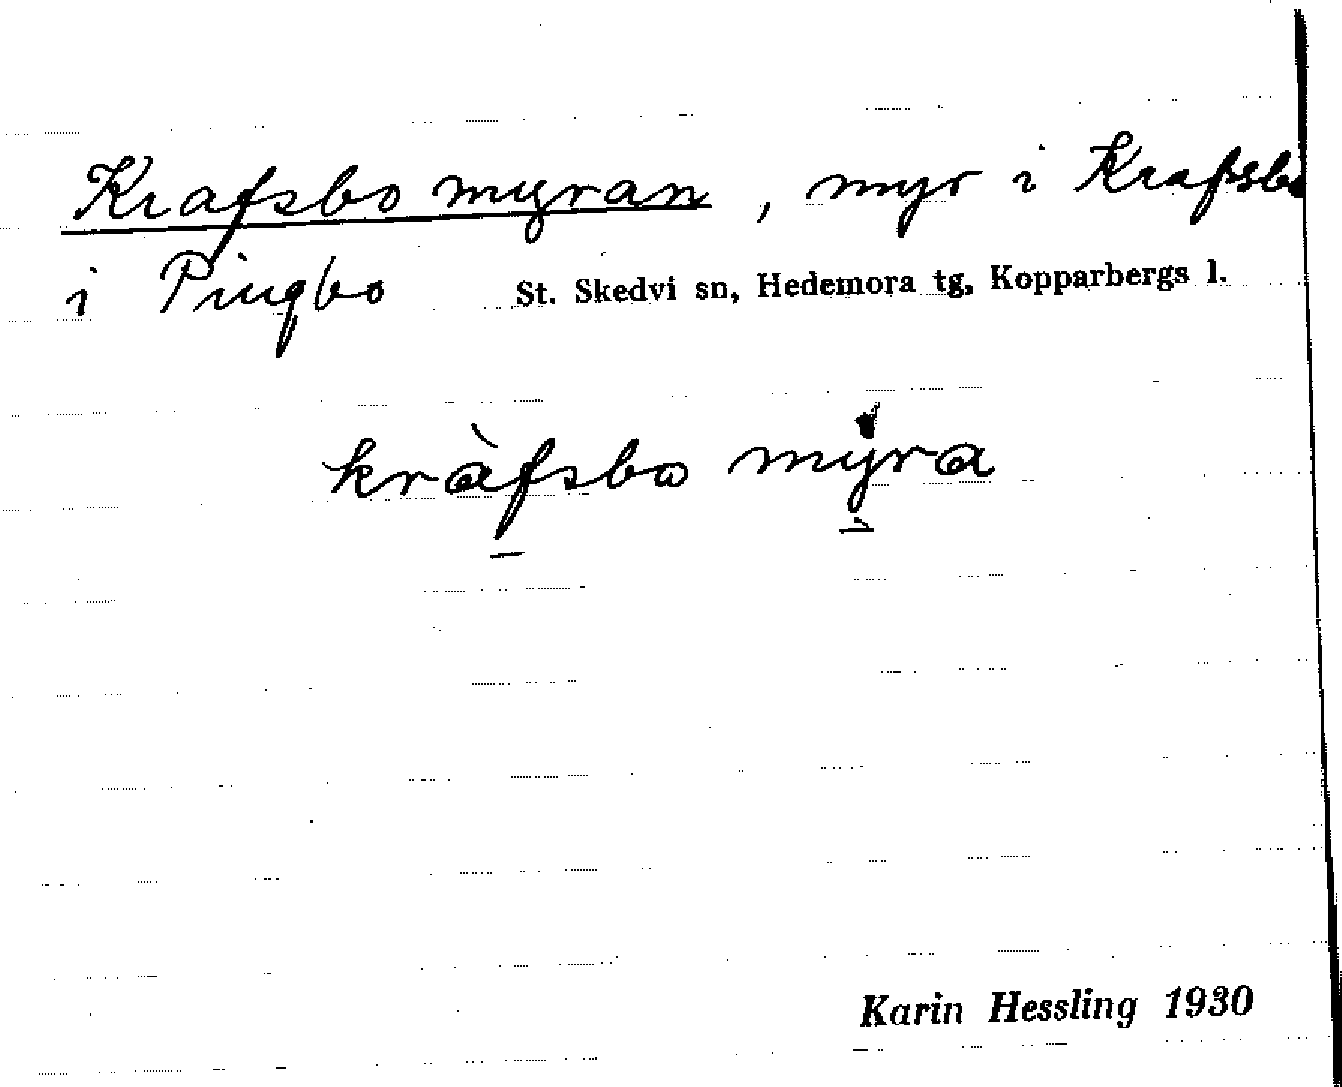 Krafsbo myran, myr i Krafsbo
i Pingbo St. Skedvi sn, Hedemora tg, Kopparbergs l.
kràfsbo mỳra
Karin Hessling 1930